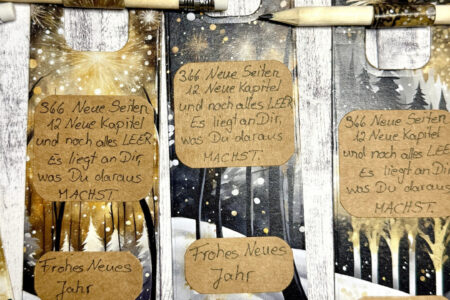 366 Neue Seiten
12 Neue Kapitel
und noch alles LEER
Es liegt an Dir,
was Du daraus
MACHST.
Frohes Neues
Jahr
366 Neue Seiten
12 Neue Kapitel
und noch alles LEER
Es liegt an Dir,
was Du daraus
MACHST.
Frohes Neues
Jahr
366 Neue Seiten
12 Neue Kapitel
und noch alles LEER
Es liegt an Dir,
was Du daraus
MACHST.